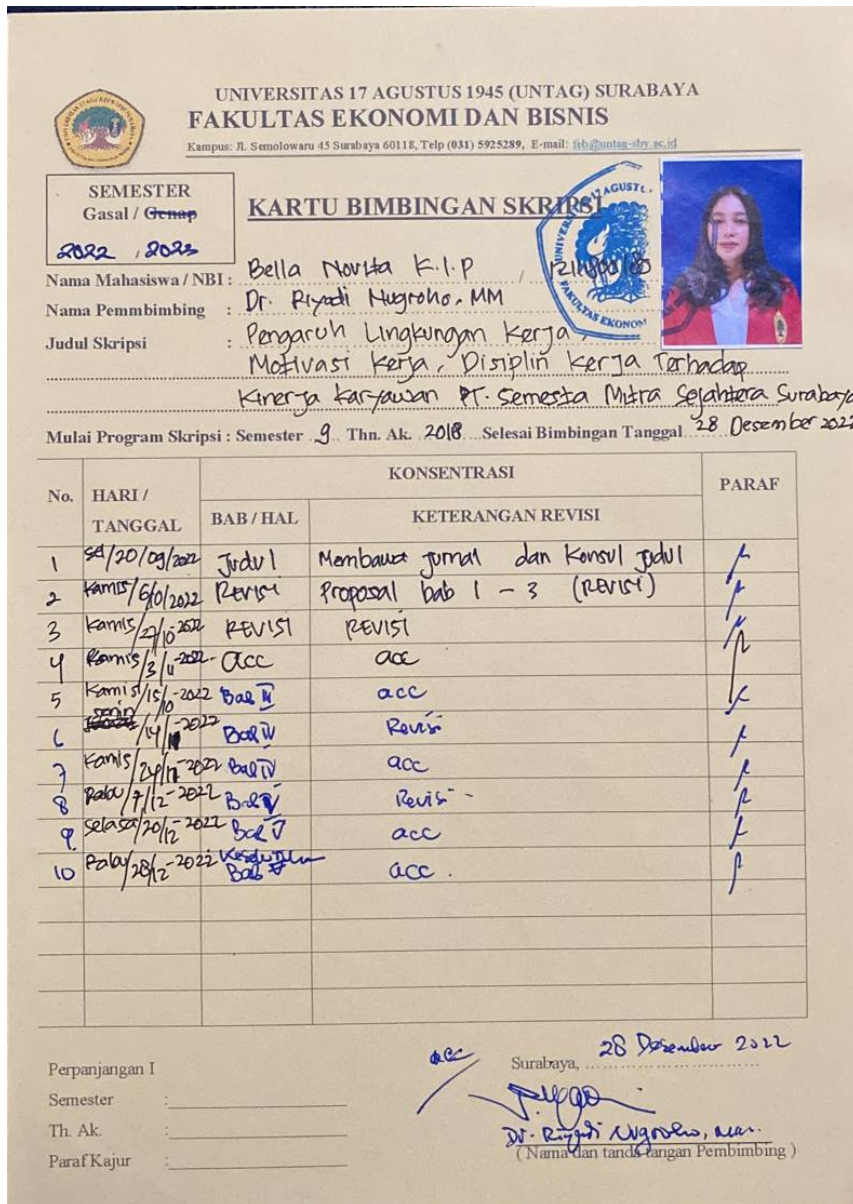 UNIVERSITAS 17 AGUSTUS 1945 (UNTAG) SURABAYA
FAKULTAS EKONOMI DAN BISNIS
Kampus: Jl. Semolowaru 45 Surabaya 60118, Telp (031) 5925289, E-mail: feb@untag-sby.ac.id
SEMESTER
Gasal / Genap
2022 , 2023
KARTU BIMBINGAN SKRIPSI
Nama Mahasiswa / NBI : Bella Novita K.I.P /
Nama Pemmbimbing : Dr. Riyadi Nugroho, MM
Judul Skripsi : Pengaruh Lingkungan Kerja,
Motivasi Kerja, Disiplin Kerja Terhadap
Kinerja Karyawan PT. Semesta Mitra Sejahtera Surabaya
Mulai Program Skripsi : Semester 9 Thn. Ak. 2018 Selesai Bimbingan Tanggal 28 Desember 2022
No. HARI / TANGGAL KONSENTRASI PARAF
BAB / HAL KETERANGAN REVISI
1 Sel/20/09/2022 Judul Membawa jurnal dan Konsul judul
2 Kamis/6/10/2022 Revisi Proposal bab 1 - 3 (REVISI)
3 Kamis/27/10-2022 REVISI REVISI
4 Kamis/3/11-2022- acc acc
5 Kamis/15/10-2022 Bab acc
6 Senin/14/ -2022 Bab IV Revisi
7 Kamis/24/11-2022 Bab IV acc
8 Rabu/7/12-2022 Bab V Revisi -
9. Selasa/20/12-2022 Bab V acc
10 Rabu/28/12-2022 Bab acc.
Perpanjangan I
acc
Surabaya, 28 Desember 2022
Semester :
Th. Ak. :
Dr. Riyadi Nugroho, MM.
Paraf Kajur :
( Nama dan tanda tangan Pembimbing )